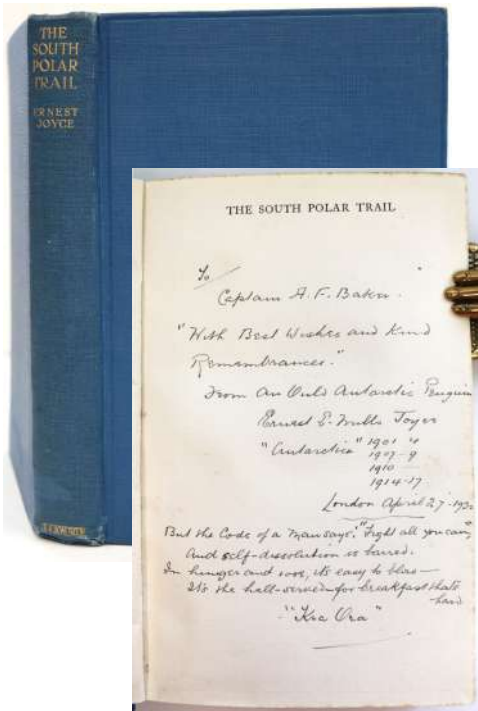 THE
SOUTH
POLAR
TRAIL
ERNEST
JOYCE
THE SOUTH POLAR TRAIL
To
Captain A. F. Baker.
"With Best Wishes and Kind
Remembrances."
From An Ould Antarctic Penguin
Ernest E. Mills Joyce
"Antarctica" 1901 4
1907-9
1910
1914-17
London April 27
But the Code of a Man says: "Fight all you can",
And self-dissolution is barred.
In hunger and woe, its easy to blow—
It's the hell-served-for breakfast thats
hard
"Kia Ora"